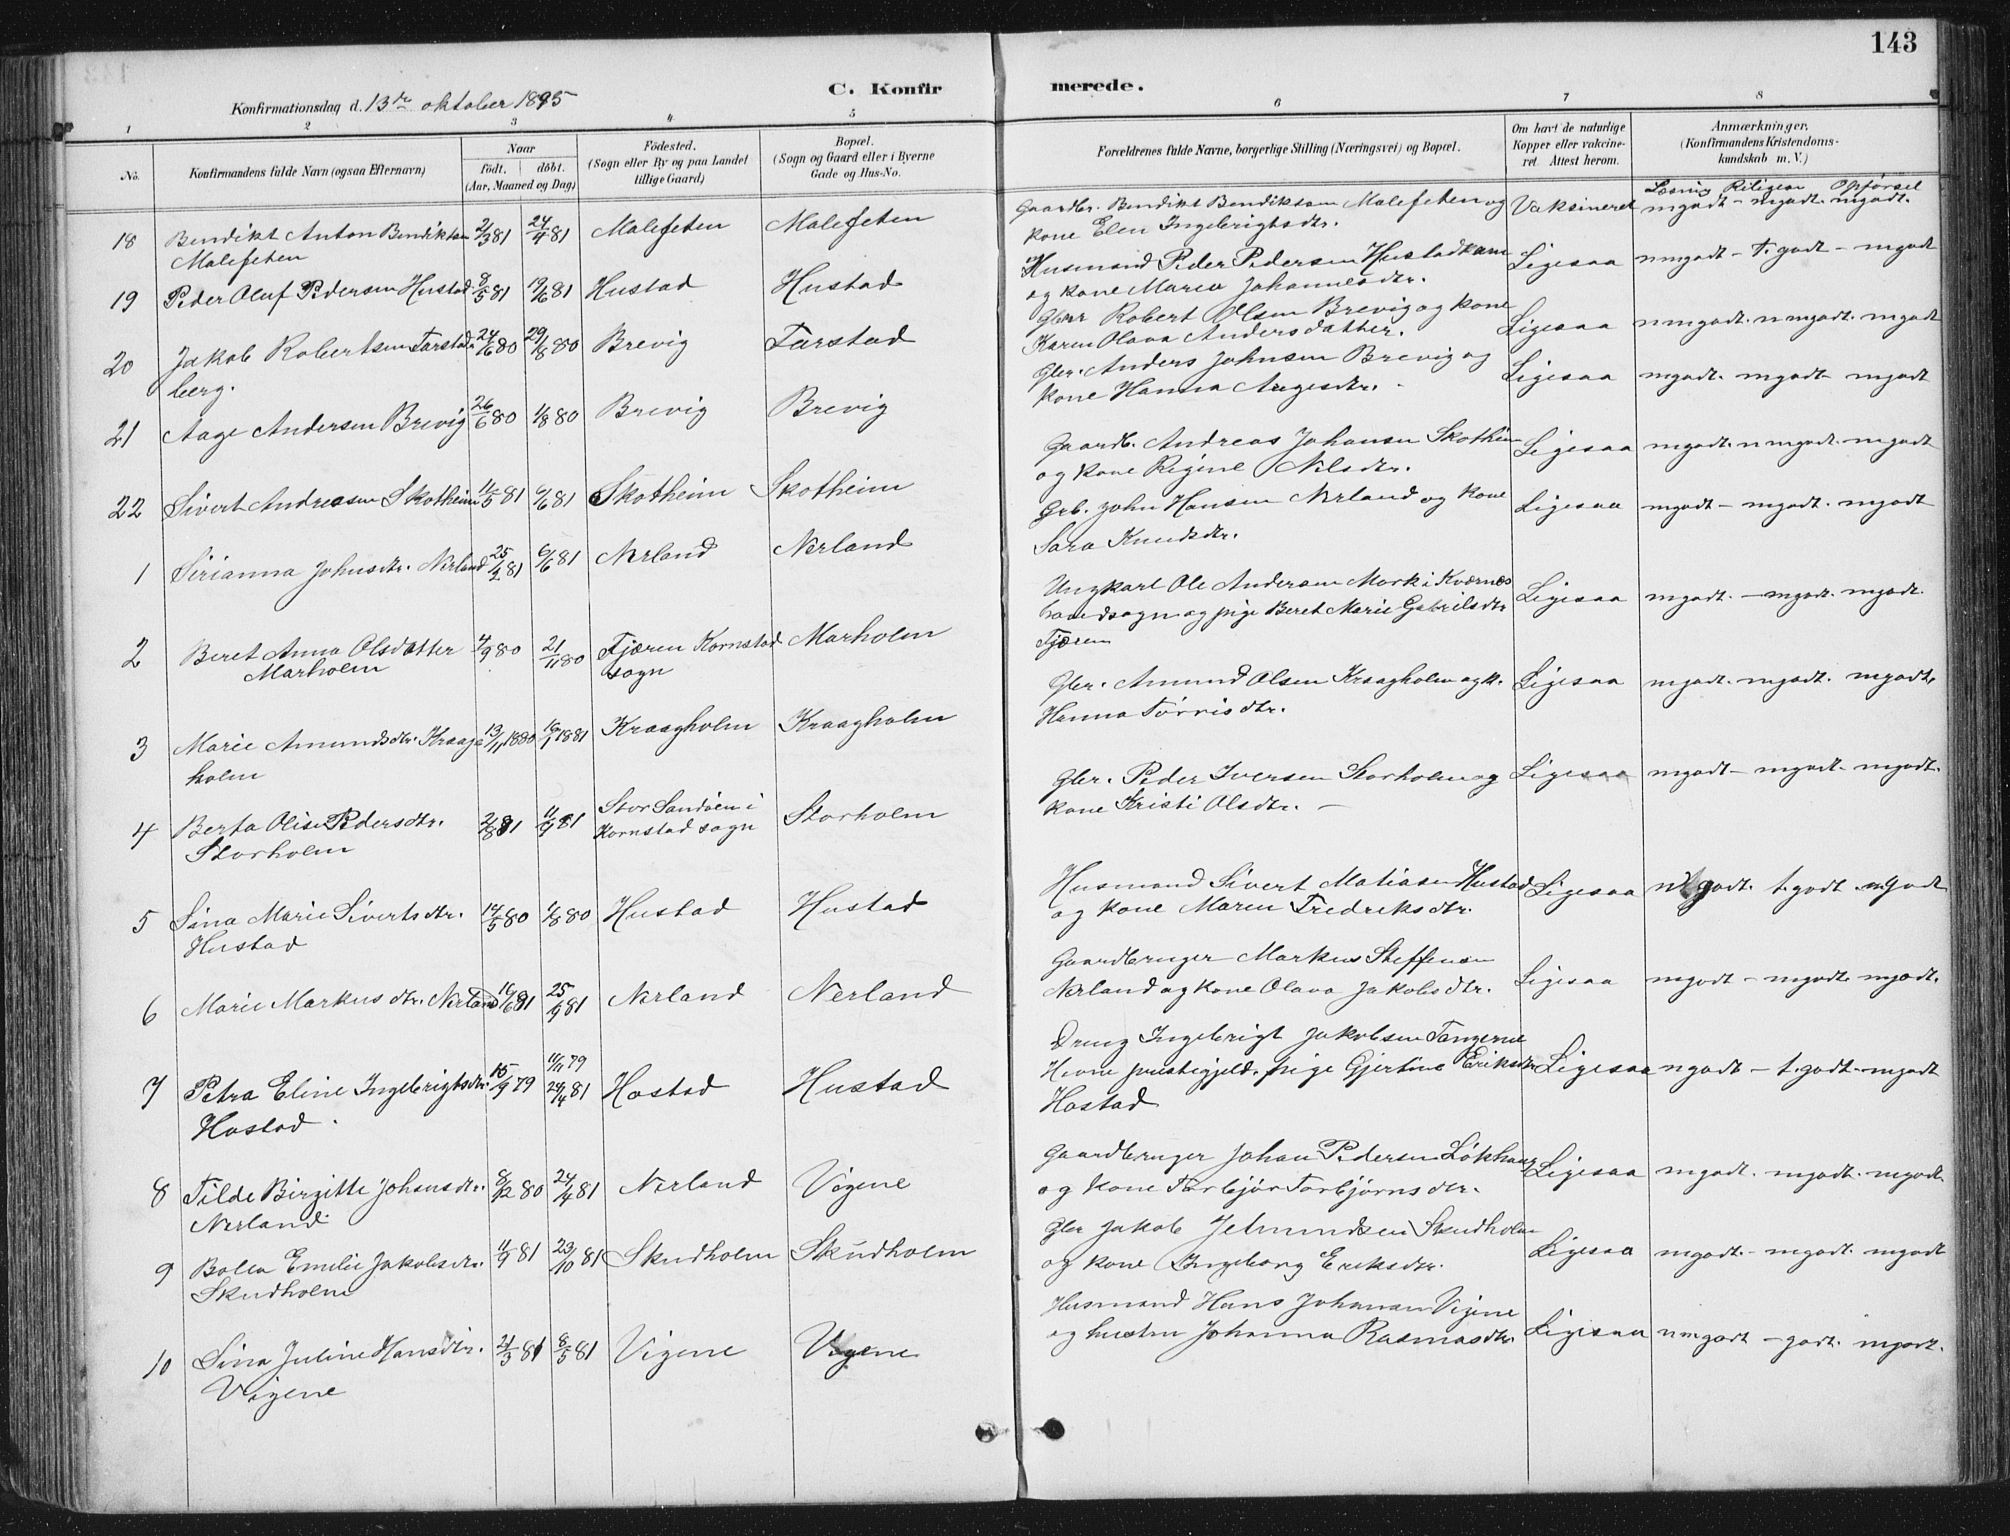 143
C. Konfirmerede.
Konfirmationsdag d. 13de oktober 1895
1 2 3 4 5 6 7 8
No.
Konfirmandens fulde Navn (ogsaa Efternavn)
Naar
födt. döbt.
(Aar, Maaned og Dag)
Födested.
(Sogn eller By og paa Landet
tillige Gaard)
Bopæl.
(Sogn og Gaard eller i Byerne
Gade og Hus-No.
Forældrenes fulde Navne, borgerlige Stilling (Næringsvei) og Bopæl.
Om havt de naturlige
Kopper eller vakcine-
ret. Attest herom.
Anmærkninger.
(Konfirmandens Kristendoms-
kundskab m. V.)
Læsning Religion Opförsel
18 Bendikt Anton Bendiktsen 2/3 81 24/4 81 Malefeten Malefeten Gaardbr. Bendikt Bendiktsen Malefeten og Vaksineret mgodt - mgodt. mgodt.
Malefeten kone Elen Ingebrigtsdtr.
19 Peder Oluf Pedersen Hustad 8/5 81 19/6 81 Hustad Hustad Husmand Peder Pedersen Hustad Ligesaa nmgodt - t. godt - mgodt
og kone Maren Johannesdtr.
20 Jakob Robertsen Farstad 24/6 80 29/8 80 Brevig Farstad Gbr Robert Olsen Brevig og kone Ligesaa nmgodt. nmgodt. mgodt
berg. Karen Olava Andersdatter.
21 Aage Andersen Brevig 26/6 80 1/8 80 Brevig Brevig Gbr. Anders Johnsen Brevig og Ligesaa mgodt. mgodt - mgodt
kone Hanna Aagesdtr.
22 Sivert Andreasen Skotheim 11/5 81 6/6 81 Skotheim Skotheim Gaardb. Andreas Johansen Skotheim Ligesaa mgodt. nmgodt. mgodt
og kone Regine Nilsdtr.
1 Sirianna Johnsdtr. Nerland 25/2 81 6/6 81 Nerland Nerland Grb. John Hansen Nerland og kone Ligesaa mgodt - mgodt. mgodt
Sara Knudsdtr.
2 Beret Anna Olsdatter 4/9 80 21/11 80 Fjæren Kornstad Marholm Ungkarl Ole Andersen Mork i Kværnes Ligesaa mgodt. - mgodt. mgodt.
Marholm sogn og pige Beret Marie Gabrielsdtr
Fjæren
3 Marie Amundsdtr. Kraag 13/11 1880 16/1 1881 Kraagholm Kraagholm Gbr. Amund Olsen Kraagholm og k. Ligesaa mgodt. mgodt. mgodt.
holm Hanna Törrisdtr.
4 Berta Olise Pedersdtr. 2/8 81 11/9 81 Stor Sandöen i Storholm Gbr. Peder Iversen Storholm og Ligesaa mgodt - mgodt - mgodt.
Storholm Kornstad sogn kone Kristi Olsdtr. -
5 Sina Marie Sivertsdtr. 14/5 80 1/8 80 Hustad Hustad Husmand Sivert Matiasen Hustad Ligesaa godt. t. godt. mgodt
Hustad og kone Maren Fredriksdtr.
6 Marie Markusdtr. Nerland 16/6 81 25/9 81 Nerland Nerland Gaardbruger Markus Steffensen Ligesaa mgodt - mgodt. mgodt.
Nerland og kone Olava Jakobsdtr.
7 Petra Eline Ingebrigtsdtr. 15/9 79 11/11 79 24/4 81 Hostad Hustad Dreng Ingebrigt Jakobsen Tangerne
Hostad. Hevne prestegjeld. pige Gjertine Eriksdtr Ligesaa ngodt - t. godt - mgodt
Hostad
8 Tilde Birgitte Johansdtr. 8/12 80 24/4 81 Nerland Vigene Gaardbruger Johan Pedersen Lökhaug Ligesaa mgodt. mgodt. mgodt.
Nerland og kone Torbjör Torbjörnsdtr.
9 Bolea Emelie Jakobsdtr. 11/9 81 23/10 81 Skudholm Skudholm Gbr Jakob Jetmundsen Skudholm Ligesaa mgodt. - mgodt. mgodt
Skudholm og kone Ingeborg Eriksdtr.
10 Sina Juline Hansdtr. 21/3 81 8/5 81 Vigene Vigene Husmand Hans Johansen Vigene Ligesaa nmgodt - godt. mgodt.
Vigene og hustru Johanna Rasmusdtr.